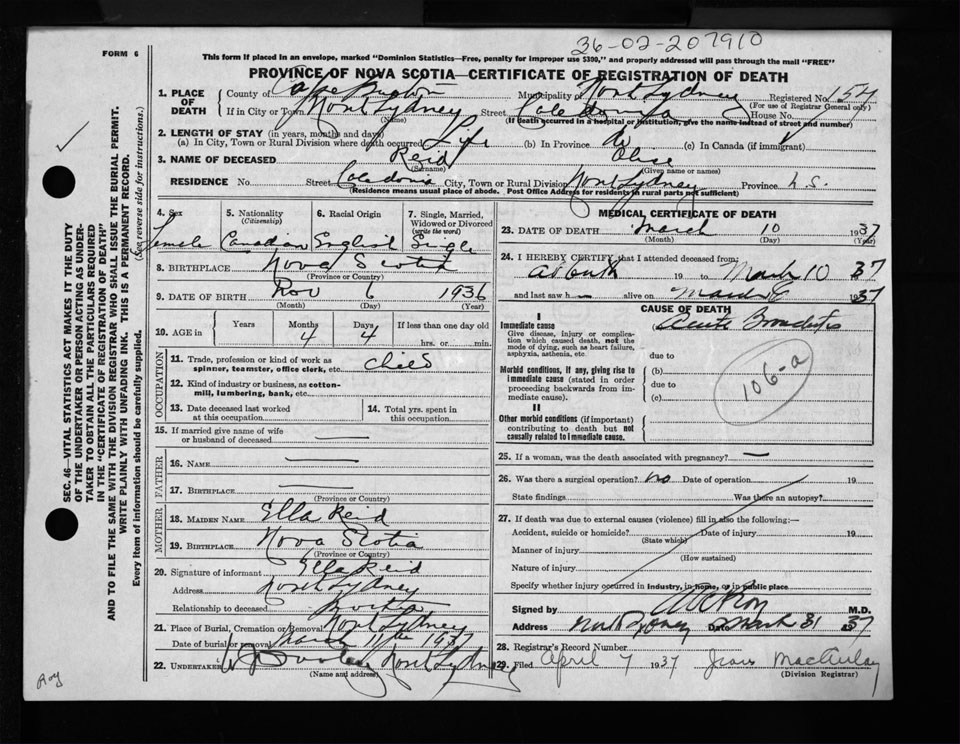 36-02-207910
FORM 6
This form if placed in an envelope, marked "Dominion Statistics—Free, penalty for improper use $300," and properly addressed will pass through the mail "FREE"
PROVINCE OF NOVA SCOTIA—CERTIFICATE OF REGISTRATION OF DEATH
1. PLACE OF DEATH County of Cape Breton Municipality of North Sydney Registered No. 154
(For use of Registrar General only)
If in City or Town North Sydney Street Caledonia House No.
(Name) (If death occurred in a hospital or institution, give the name instead of street and number)
2. LENGTH OF STAY (in years, months and days)
(a) In City, Town or Rural Division where death occurred Life (b) In Province (c) In Canada (if immigrant)
3. NAME OF DECEASED Reid Alice
(Surname) (Given name or names)
RESIDENCE No. Street Caledonia City, Town or Rural Division North Sydney Province N.S.
(Residence means usual place of abode. Post Office Address for residents in rural parts not sufficient)
4. Sex Female
5. Nationality (Citizenship) Canadian
6. Racial Origin English
7. Single, Married, Widowed or Divorced (write the word) Single
8. BIRTHPLACE Nova Scotia
(Province or Country)
9. DATE OF BIRTH Nov 6 1936
(Month) (Day) (Year)
10. AGE in Years Months 4 Days 4 If less than one day old hrs. or min.
OCCUPATION
11. Trade, profession or kind of work as spinner, teamster, office clerk, etc. Child
12. Kind of industry or business, as cotton-mill, lumbering, bank, etc.
13. Date deceased last worked at this occupation
14. Total yrs. spent in this occupation
15. If married give name of wife or husband of deceased —
FATHER
16. NAME —
17. BIRTHPLACE —
(Province or Country)
MOTHER
18. MAIDEN NAME Ella Reid
19. BIRTHPLACE Nova Scotia
(Province or Country)
20. Signature of informant Ella Reid
Address North Sydney
Relationship to deceased Mother
21. Place of Burial, Cremation or Removal North Sydney
Date of burial or removal March 11th 1937
22. UNDERTAKER North Sydney
(Name and address)
MEDICAL CERTIFICATE OF DEATH
23. DATE OF DEATH March 10 1937
(Month) (Day) (Year)
24. I HEREBY CERTIFY that I attended deceased from:
at birth 19 to March 10 1937
and last saw h alive on March 8 1937
CAUSE OF DEATH
I
Immediate cause
Give disease, injury or complication which caused death, not the mode of dying, such as heart failure, asphyxia, asthenia, etc
Acute Bronchitis
due to
Morbid conditions, if any, giving rise to immediate cause (stated in order proceeding backwards from immediate cause).
(b)
due to
(c)
106-a
II
Other morbid conditions (if important) contributing to death but not causally related to immediate cause.
25. If a woman, was the death associated with pregnancy? —
26. Was there a surgical operation? no Date of operation 19
State findings Was there an autopsy?
27. If death was due to external causes (violence) fill in also the following:—
Accident, suicide or homicide? Date of injury 19
(State which)
Manner of injury
(How sustained)
Nature of injury
Specify whether injury occurred in industry, in home, or in public place
Signed by M.D.
Address North Sydney Date March 31 1937
28. Registrar's Record Number
29. Filed April 7 1937 Jean MacAulay
(Division Registrar)
SEC. 46—VITAL STATISTICS ACT MAKES IT THE DUTY
OF THE UNDERTAKER OR PERSON ACTING AS UNDER-
TAKER TO OBTAIN ALL THE PARTICULARS REQUIRED
IN THE "CERTIFICATE OF REGISTRATION OF DEATH"
AND TO FILE THE SAME WITH THE DIVISION REGISTRAR WHO SHALL ISSUE THE BURIAL PERMIT.
WRITE PLAINLY WITH UNFADING INK. THIS IS A PERMANENT RECORD.
Every item of information should be carefully supplied. (See reverse side for instructions.)
Roy